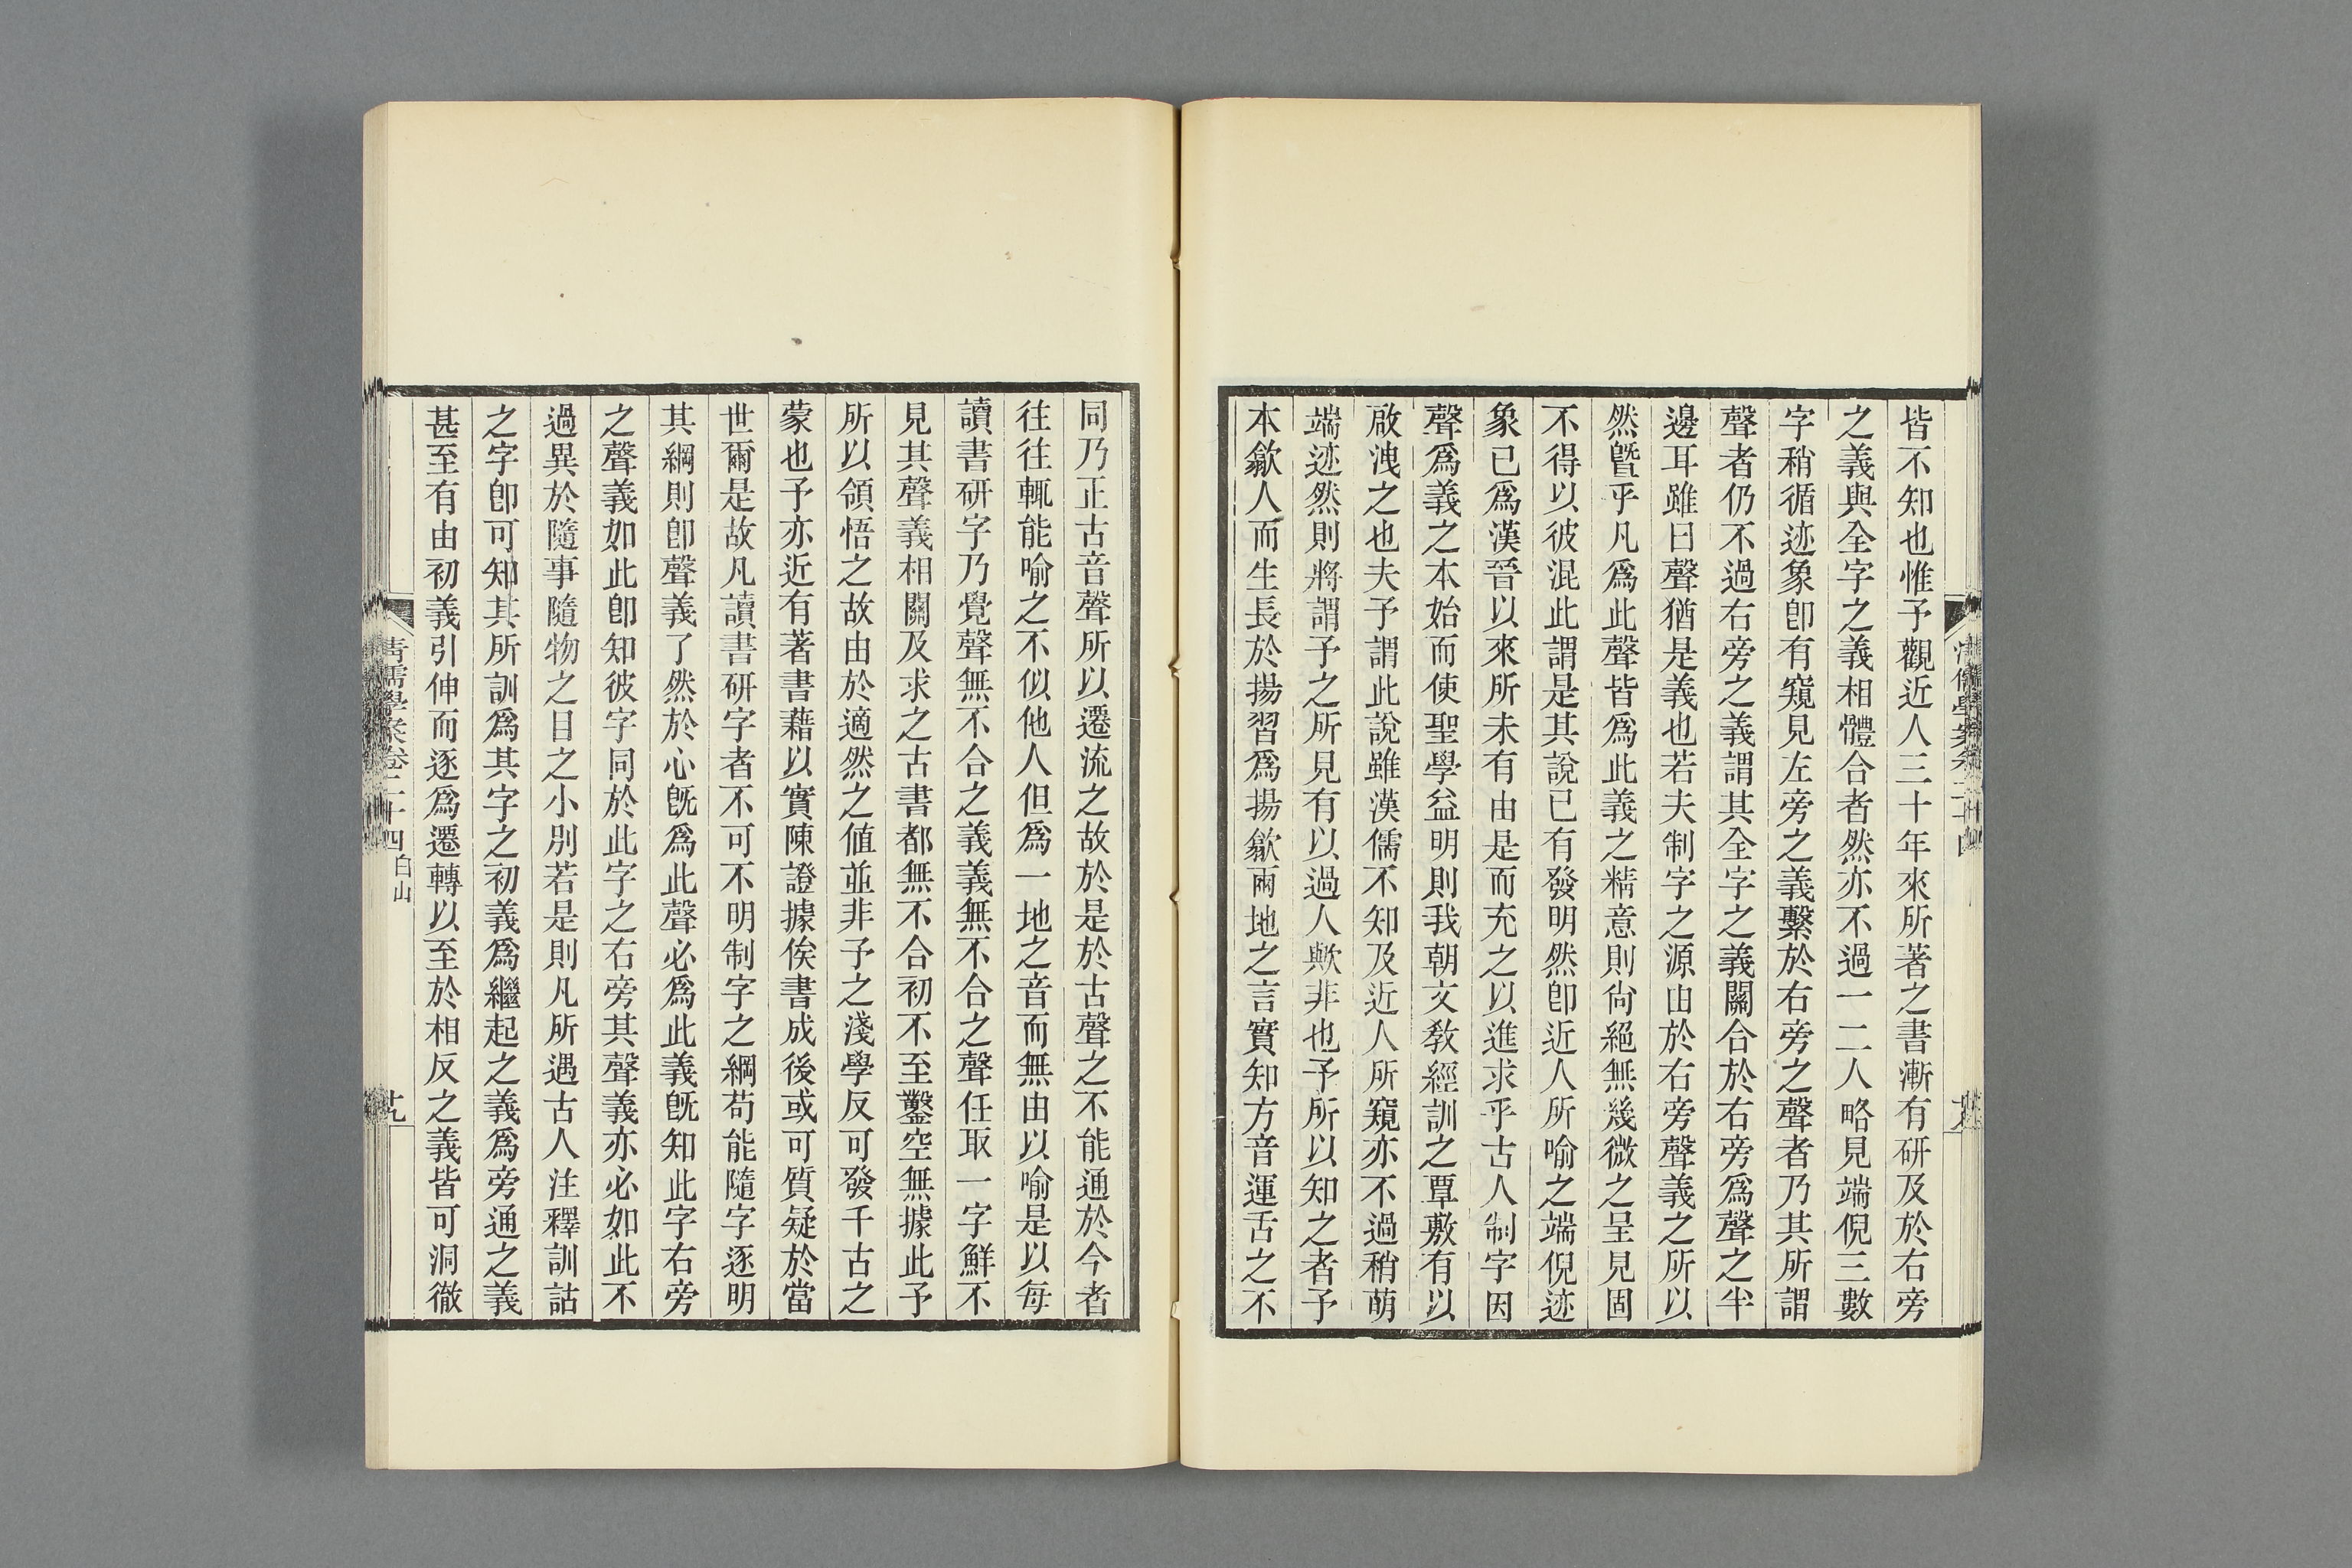 皆不知也惟予觀近人三十年來所著之書漸有研及於右旁
之義與全字之義相體合者然亦不過一二人略見端倪三數
字稍循迹象卽有窺見左旁之義繫於右旁之聲者乃其所謂
聲者仍不過右旁之義謂其全字之義關合於右旁爲聲之半
邊耳雖曰聲猶是義也若夫制字之源由於右旁聲義之所以
然曁乎凡爲此聲皆爲此義之精意則尙絕無幾微之呈見固
不得以彼混此謂是其說已有發明然卽近人所喻之端倪迹
象已爲漢晉以來所未有由是而充之以進求乎古人制字因
聲爲義之本始而使聖學益明則我朝文敎經訓之覃敷有以
啟洩之也夫予謂此說雖漢儒不知及近人所窺亦不過稍萌
端迹然則將謂予之所見有以過人歟非也予所以知之者予
本歙人而生長於揚習爲揚歙兩地之言實知方音運舌之不
同乃正古音聲所以遷流之故於是於古聲之不能通於今者
往往輒能喻之不似他人但爲一地之音而無由以喻是以每
讀書研字乃覺聲無不合之義義無不合之聲任取一字鮮不
見其聲義相關及求之古書都無不合初不至鑿空無據此予
所以領悟之故由於適然之値並非予之淺學反可發千古之
蒙也予亦近有著書藉以實陳證據俟書成後或可質疑於當
世爾是故凡讀書研字者不可不明制字之綱苟能隨字逐明
其綱則卽聲義了然於心旣爲此聲必爲此義旣知此字右旁
之聲義如此卽知彼字同於此字之右旁其聲義亦必如此不
過異於隨事隨物之目之小別若是則凡所遇古人注釋訓詁
之字卽可知其所訓爲其字之初義爲繼起之義爲旁通之義
甚至有由初義引伸而逐爲遷轉以至於相反之義皆可洞徹
淸儒學案卷二十四
白山
十九